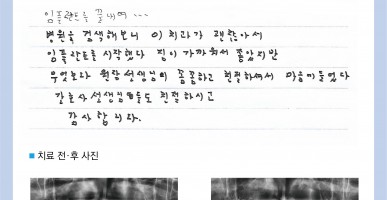 임플란트를 끝내며...
병원을 검색해보니 이 치과가 괜찮아서
임플란트를 시작했다 집이 가까워서 좋았지만
무엇보다 원장선생님이 꼼꼼하고 친절하셔서 마음이 놓였다
간호사 선생님들도 친절하시고
감사합니다.
■ 치료 전·후 사진